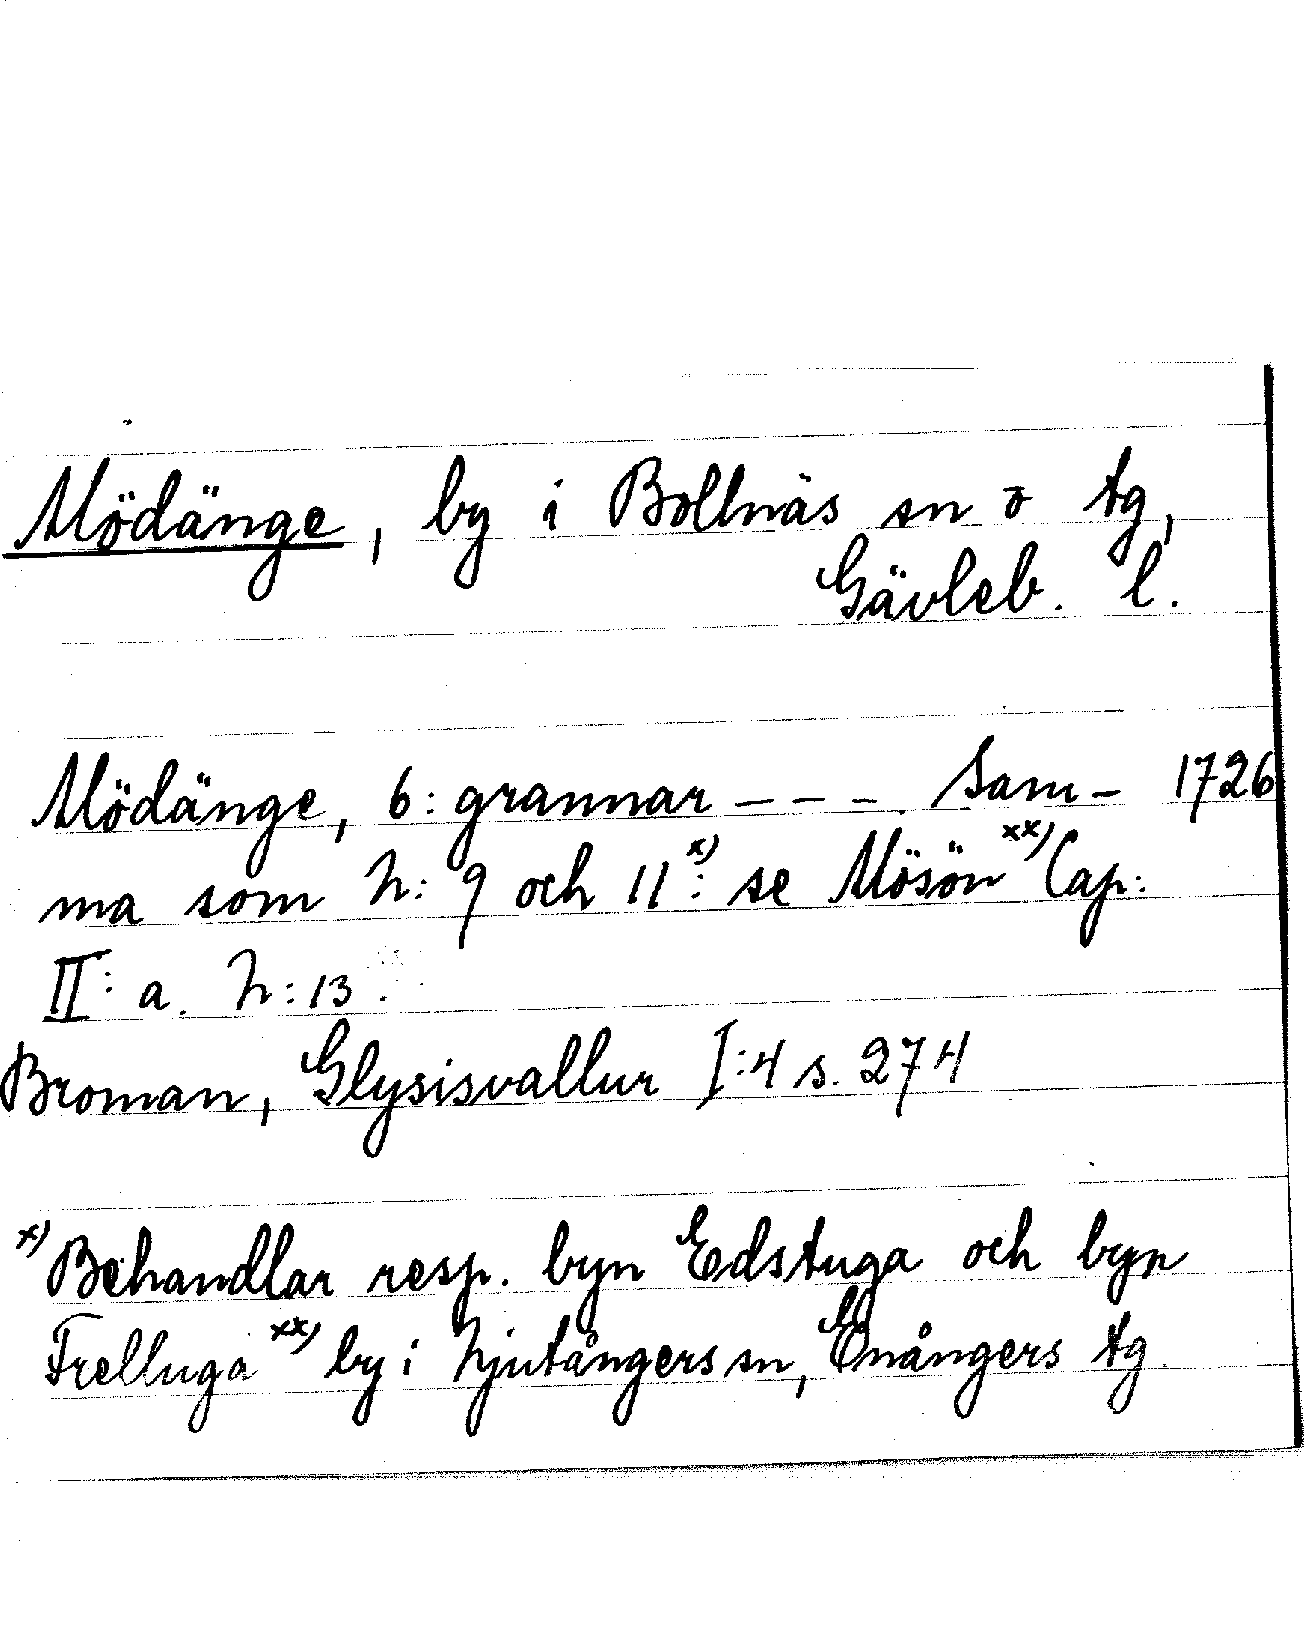 Mödänge, by i Bollnäs sn o tg,
Gävleb. l.
Mödänge, 6: grannar - - - Sam- 1726
ma som N: 9 och 11 x): se Mösön xx) Cap:
II: a. N: 13.
Broman, Glysisvallur I:4 s. 274
x) Behandlar resp. byn Edstuga och byn
Frelluga xx) by i Njutångers sn, Enångers tg